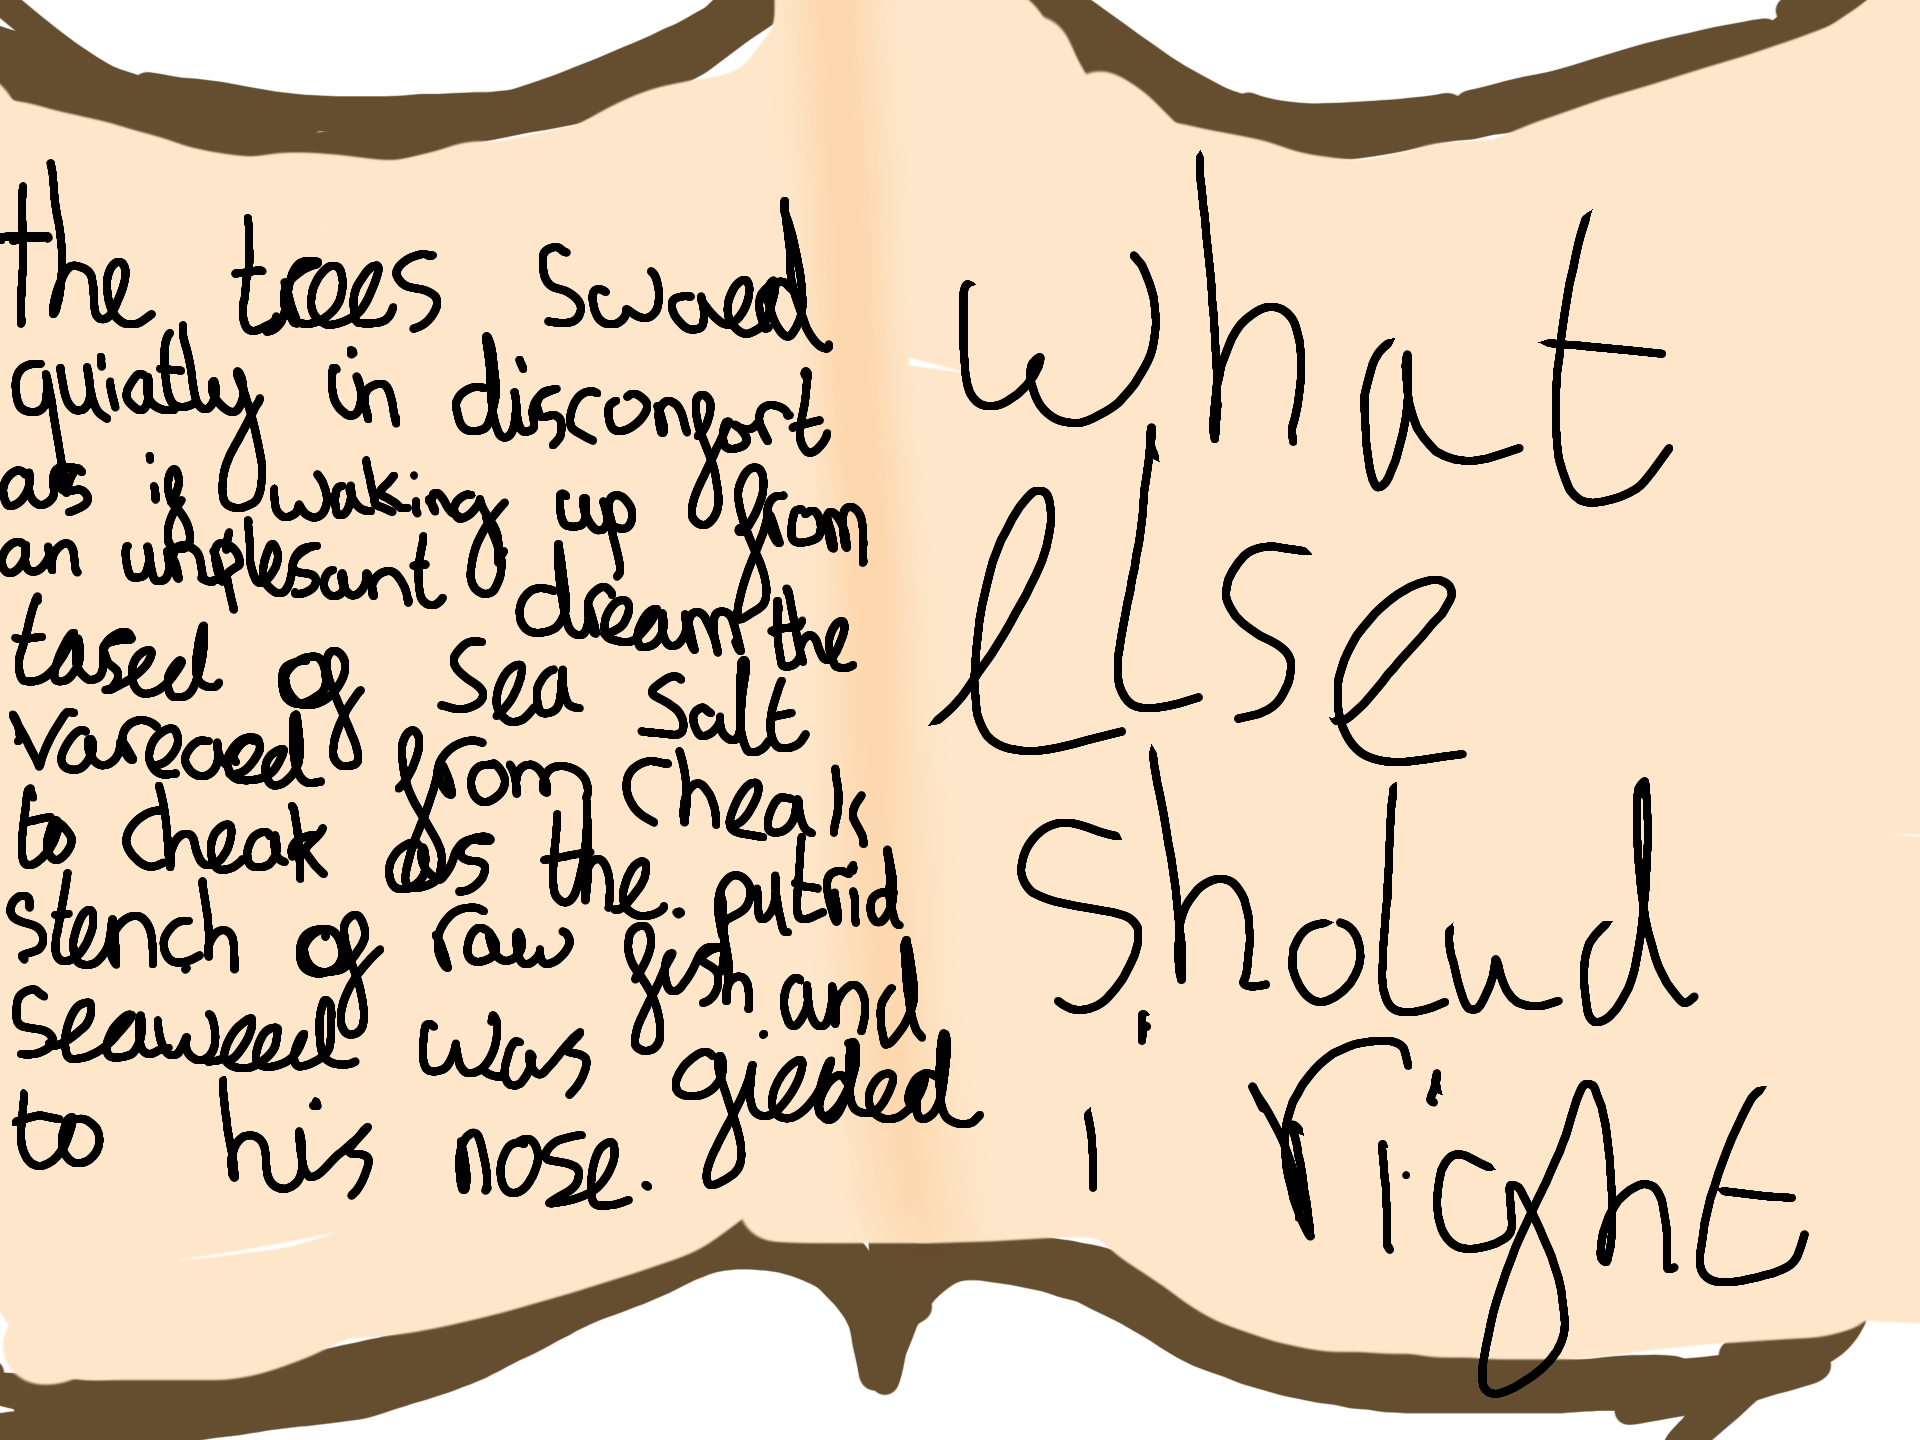 the trees swaed
quiatly in disconfort
as if waking up from
an unplesant dream the
tased of sea salt
vareaed from cheak
to cheak as the. putrid
stench of raw fish and
seaweed was gieded
to his nose.
what
else
sholud
i right